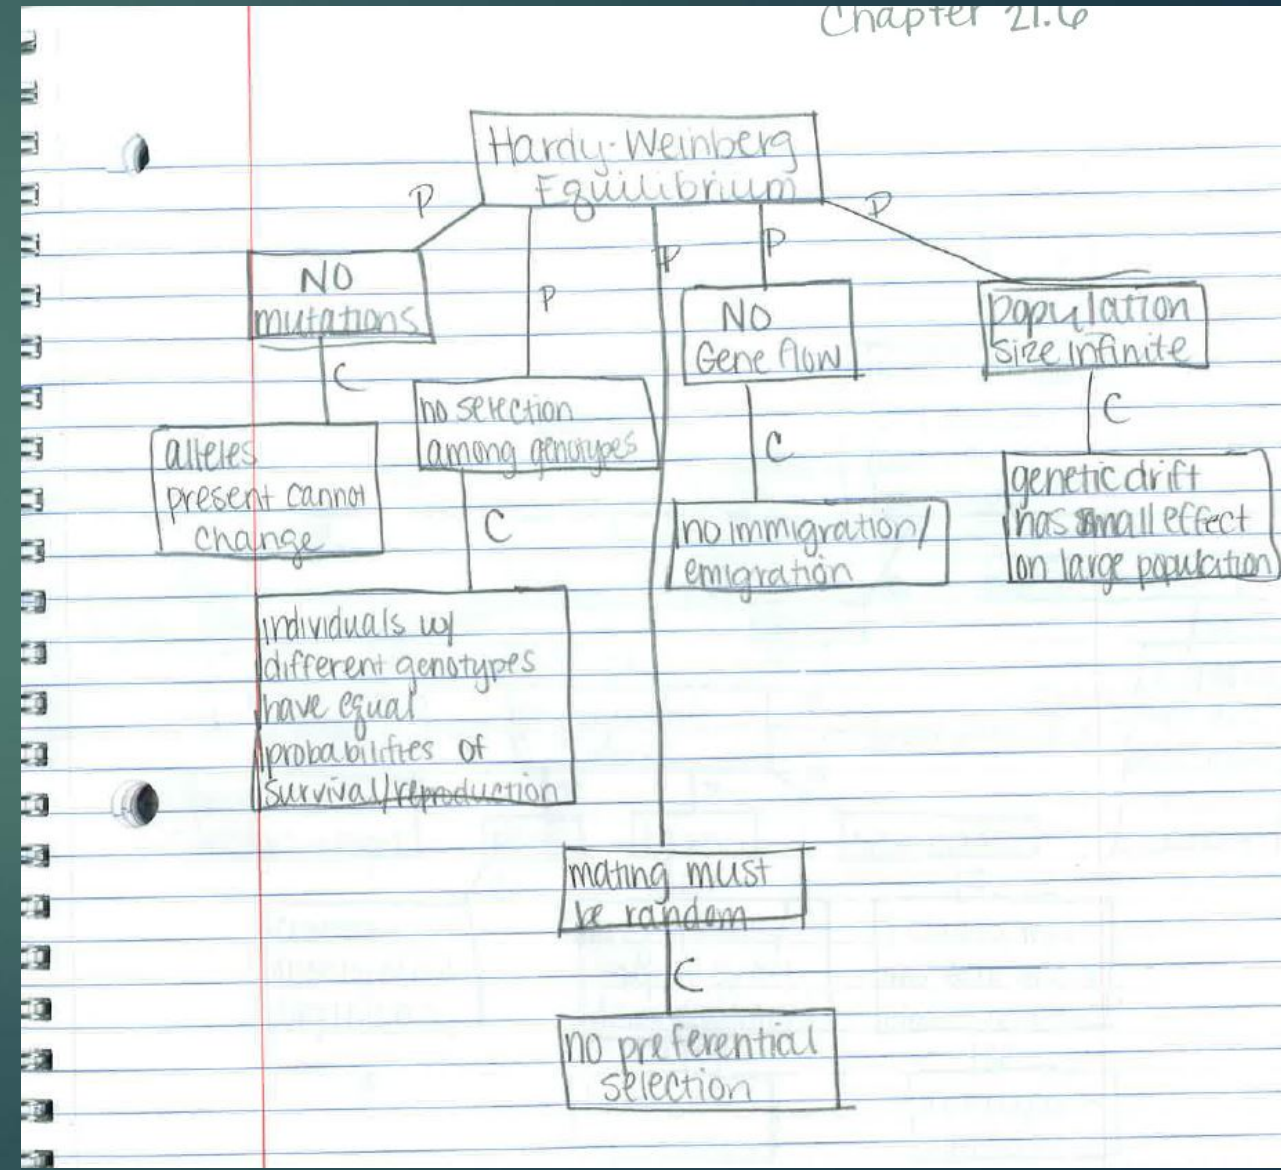 Chapter 21.6
Hardy-Weinberg
Equilibrium
P
P
P
P
P
NO
mutations
C
alleles
present cannot
change
no selection
among genotypes
C
individuals w/
different genotypes
have equal
probabilities of
survival/reproduction
mating must
be random
C
no preferential
selection
NO
Gene flow
C
no immigration/
emigration
population
size infinite
C
genetic drift
has small effect
on large population